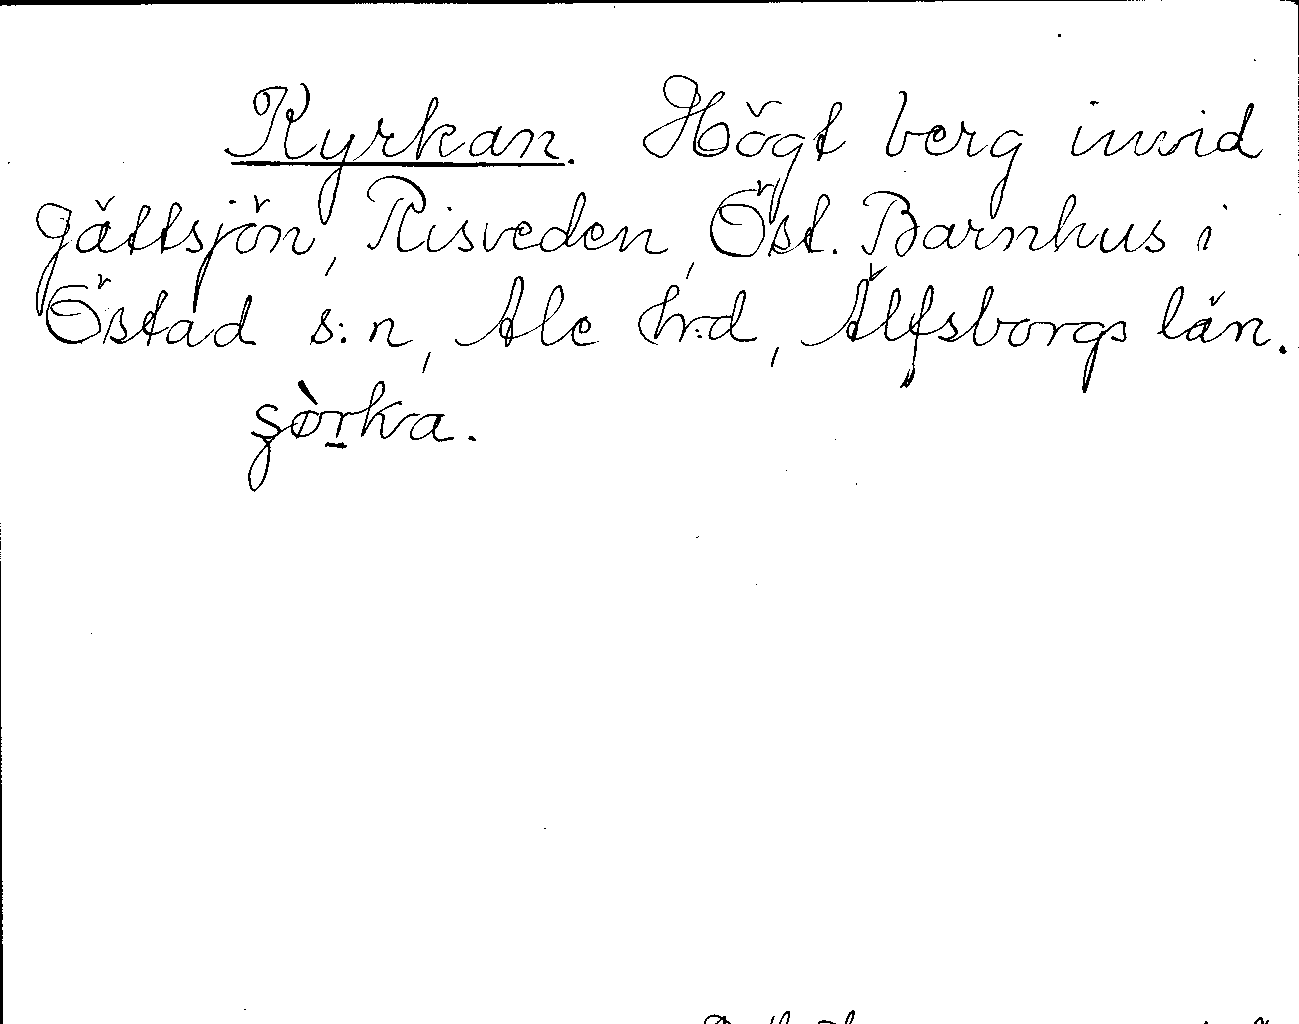 Kyrkan. Högt berg invid
gättsjön, Risveden, Öst. Barnhus i
Östad s:n, Ale hrd, Älfsborgs län.